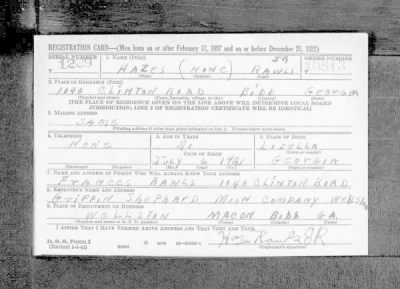 REGISTRATION CARD—(Men born on or after February 17, 1897 and on or before December 31, 1921)
SERIAL NUMBER 1. NAME (Print) ORDER NUMBER
HAZES (NONE) RAWLS JR
(First) (Middle) (Last)
2. PLACE OF RESIDENCE (Print)
1040 CLINTON ROAD BIBB GEORGIA
(Number and street) (Town, township, village, or city) (County) (State)
[THE PLACE OF RESIDENCE GIVEN ON THE LINE ABOVE WILL DETERMINE LOCAL BOARD
JURISDICTION; LINE 2 OF REGISTRATION CERTIFICATE WILL BE IDENTICAL]
3. MAILING ADDRESS
SAME
(Mailing address if other than place indicated on line 2. If same insert word same)
4. TELEPHONE 5. AGE IN YEARS 6. PLACE OF BIRTH
NONE LIZELLA
DATE OF BIRTH
JULY 6 GEORGIA
7. NAME AND ADDRESS OF PERSON WHO WILL ALWAYS KNOW YOUR ADDRESS
FRANCES RAWLS 1040 CLINTON ROAD
8. EMPLOYER'S NAME AND ADDRESS
GRIFFIN SHEPHARD COMPANY
9. PLACE OF EMPLOYMENT OR BUSINESS
WELLSTON MACON BIBB GA.
I AFFIRM THAT I HAVE VERIFIED ABOVE ANSWERS AND THAT THEY ARE TRUE.
D. S. S. FORM 1
(Registrant's signature)